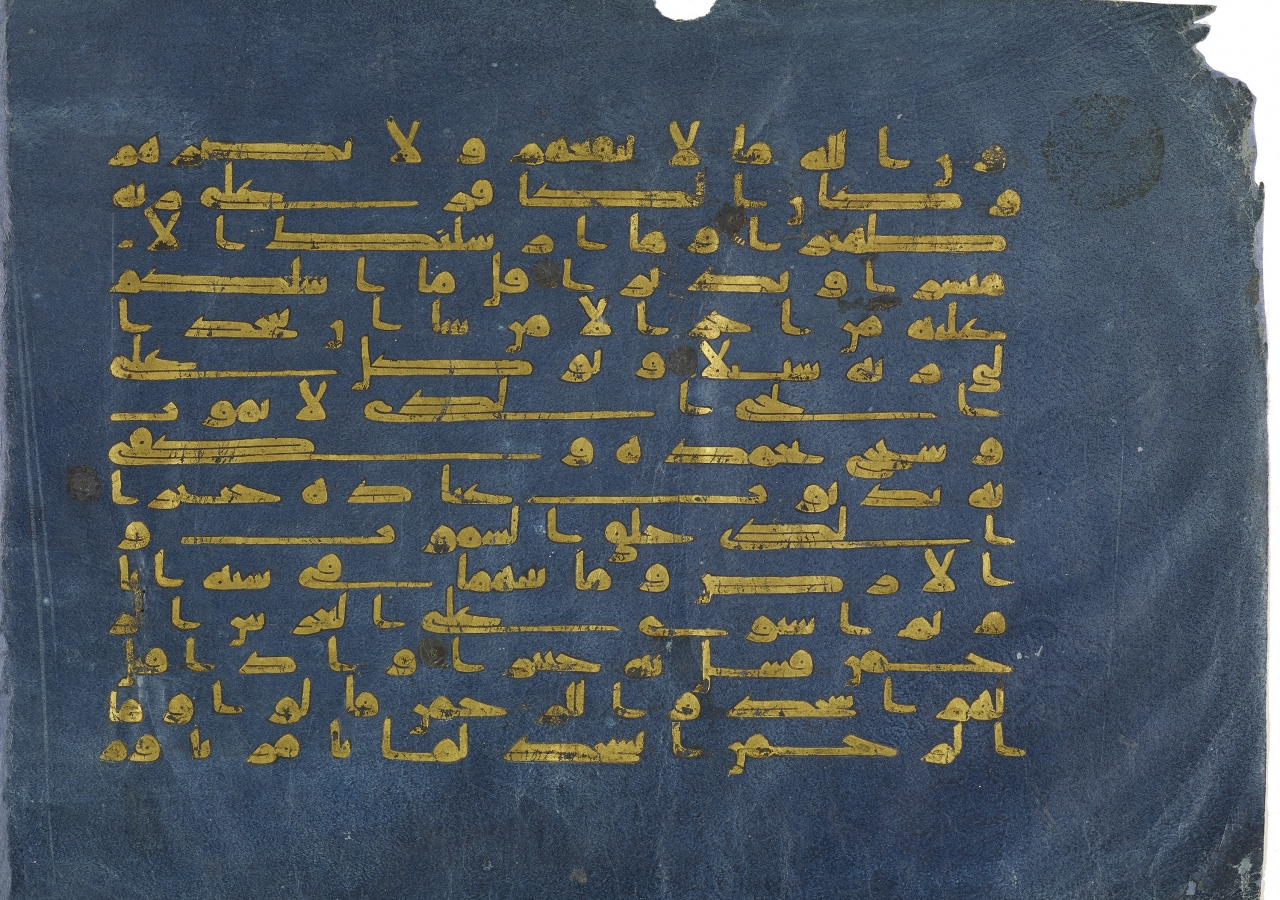 ون الله ما لا ينفعهم ولا يضرهم
وكان الكفر على ربه
ظهيرا وما ارسلنك الا
مبشرا ونذيرا قل ما اسلكم
عليه من اجر الا من شا ان يتخذ ا
لى ربه سبيلا وتوكل على
الحى الذى لا يموت
وسبح بحمده وكفى
به بذنوب عباده خبيرا
الذى خلق السموت و
الارض وما بينهما فى ستة ايا
م ثم استوى على العرش الر
حمن فسل به خبيرا واذا قيل
لهم اسجدوا للرحمن قالوا وما
الرحمن انسجد لما تامرنا